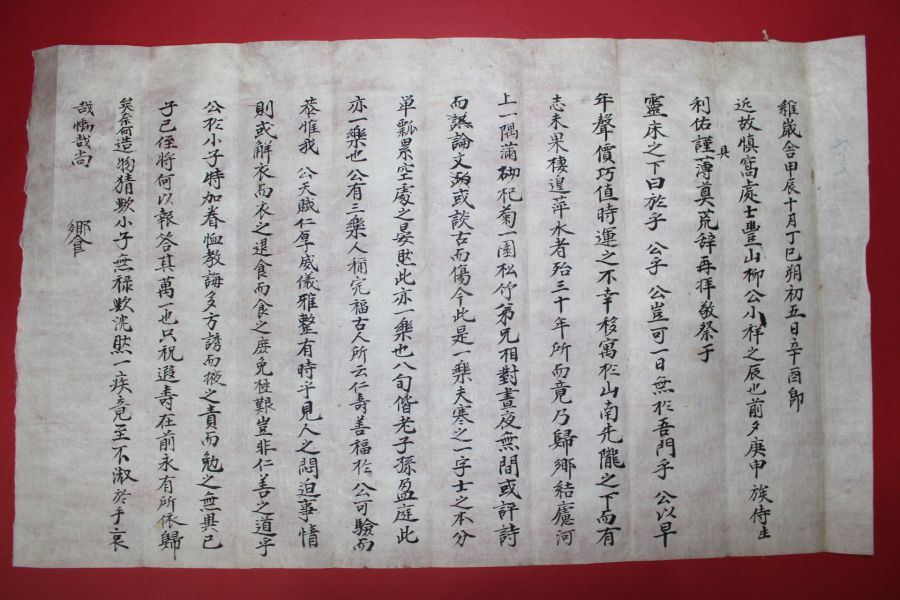 維歲舍甲辰十月丁巳朔初五日辛酉即
近故慎窩處士豊山柳公小祥之辰也前夕庚申族侍生
利佑謹具薄奠荒辞再拜敬祭于
靈床之下曰於乎 公乎 公豈可一日無於吾門乎 公以早
年聲價巧值時運之不幸移寓於山南先隴之下而有
志未果棲遑萍水者殆三十年所而竟乃歸鄉結廬河
上一隅蒲柳杞菊一園松竹弟兄相對晝夜無間或評詩
而論文或談古而傷今此是一樂夫寒之一字士之本分
單瓢累空處之晏然此亦一樂也八旬偕老子孫盈庭此
亦一樂也公有三樂人稱完福古人所云仁壽善福於 公可驗而
恭惟我 公天賦仁厚威儀雅整有時乎見人之悶迫事情
則或解衣而衣之退食而食之庶免艱豈非仁善之道乎
公於小子特加眷恤教誨多方誘而掖之責而勉之無異己
子己侄將何以報答其萬一也只祝遐壽在前永有所依歸
矣奈何造物猜歟小子無祿歟沈然一疾竟至不淑於乎哀
哉慟哉尚 饗